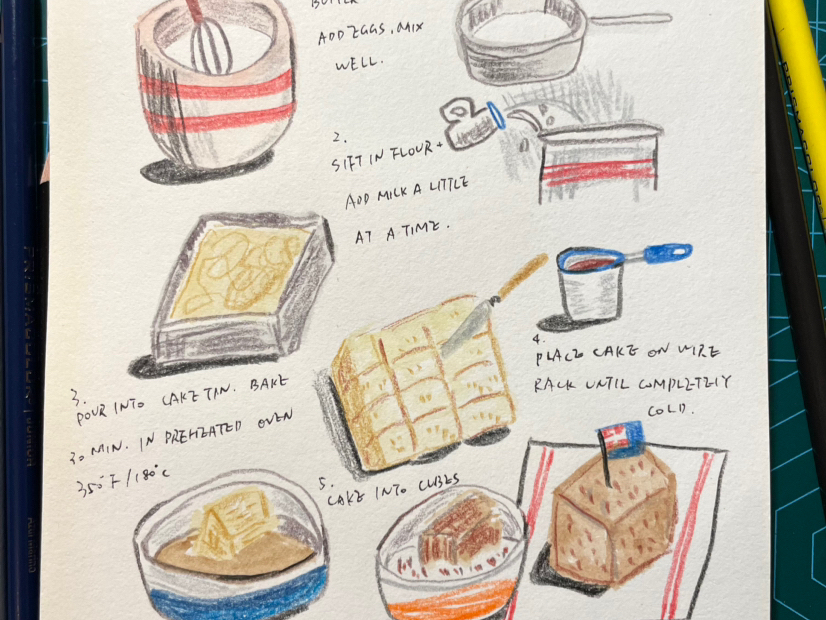 BUTTER
ADD EGGS, MIX
WELL.
2.
SIFT IN FLOUR +
ADD MILK A LITTLE
AT A TIME.
3.
POUR INTO CAKE TIN. BAKE
30 MIN. IN PREHEATED OVEN
350°F/180°C
4.
PLACE CAKE ON WIRE
RACK UNTIL COMPLETELY
COLD.
5.
CAKE INTO CUBES
PRISMACOLOR
PRISMACOLOR